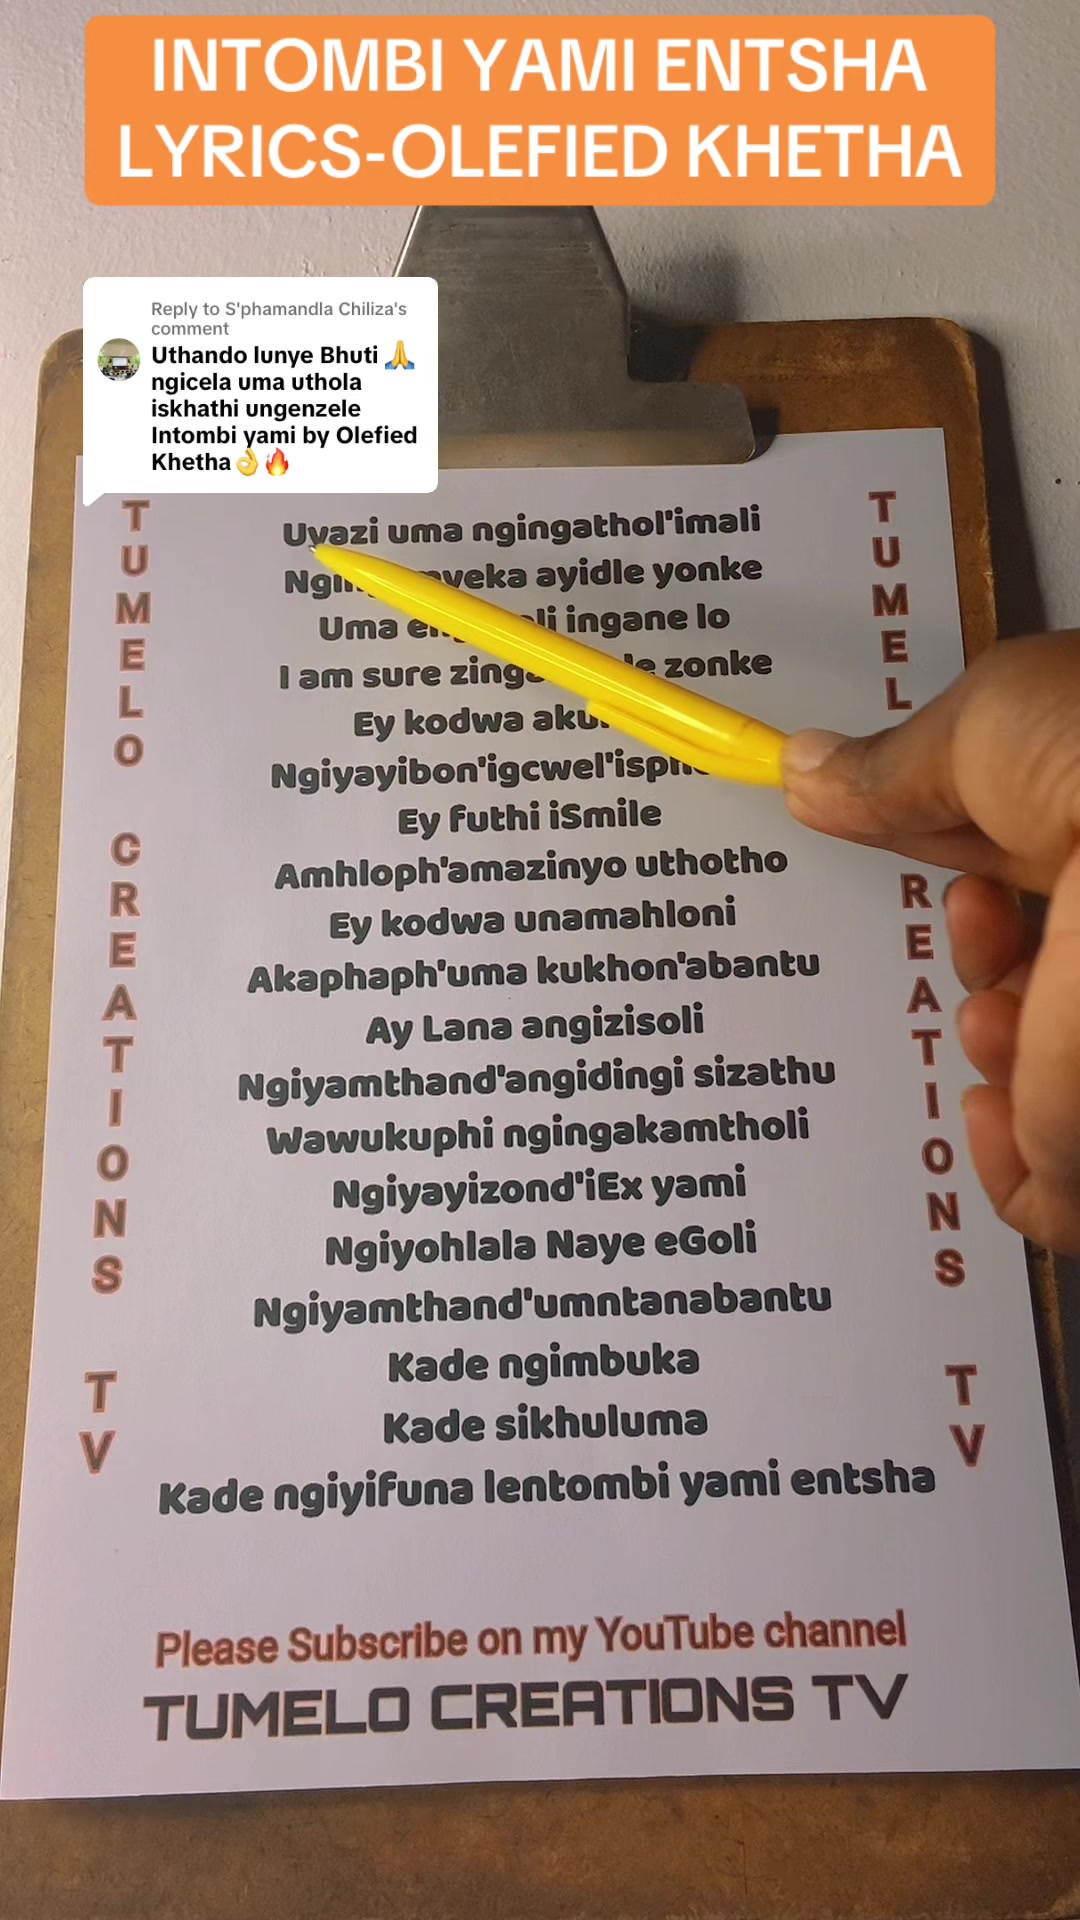 INTOMBI YAMI ENTSHA
LYRICS-OLEFIED KHETHA
Reply to S'phamandla Chiliza's
comment
Uthando lunye Bhuti 🙏
ngicela uma uthola
iskhathi ungenzele
Intombi yami by Olefied
Khetha👌🔥
TUMELO CREATIONS TV
Uyazi uma ngingathol'imali
ayidle yonke
Uma ingane lo
I am sure zonke
Ey kodwa
Ngiyayibon'igcwel'
Ey futhi iSmile
Amhloph'amazinyo uthotho
Ey kodwa unamahloni
Akaphaph'uma kukhon'abantu
Ay Lana angizisoli
Ngiyamthand'angidingi sizathu
Wawukuphi ngingakamtholi
Ngiyayizond'iEx yami
Ngiyohlala Naye eGoli
Ngiyamthand'umntanabantu
Kade ngimbuka
Kade sikhuluma
Kade ngiyifuna lentombi yami entsha
TUMEL REATIONS TV
Please Subscribe on my YouTube channel
TUMELO CREATIONS TV